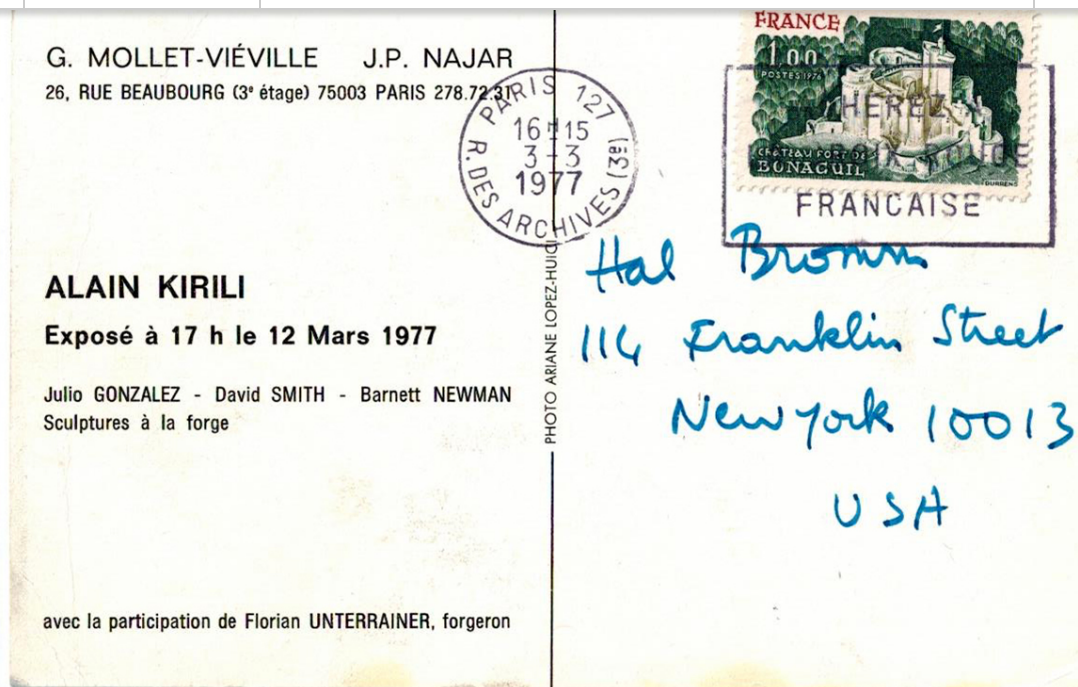 G. MOLLET-VIÉVILLE J.P. NAJAR
26, RUE BEAUBOURG (3e étage) 75003 PARIS 278.72.31
ALAIN KIRILI
Exposé à 17 h le 12 Mars 1977
Julio GONZALEZ - David SMITH - Barnett NEWMAN
Sculptures à la forge
avec la participation de Florian UNTERRAINER, forgeron
PHOTO ARIANE LOPEZ-HUICI
PARIS 127
16H15
3-3
1977
R. DES ARCHIVES (3e)
FRANCE
1,00
POSTES 1976
CHÂTEAU FORT DE
BONAGUIL
DURRENS
FRANCAISE
Hal Bromm
114 Franklin Street
New York 10013
USA